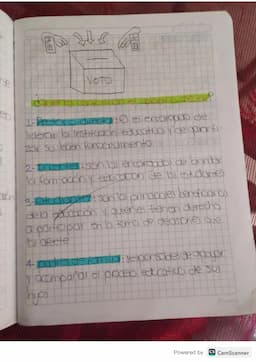 VOTO
: Es el encargado de
liderar la institución educativa y de garanti
zar su buen funcionamiento
2- : son los encargados de brindar
la formación y educación de los estudiantes
3- Estudiantes : son los principales beneficiarios
de la educación y quienes tienen derecho
a participar en la toma de decisiones que
los afecte
4- Padres de familia : responsables de apoyar
y acompañar el proceso educativo de sus
hijos
Powered by CS CamScanner